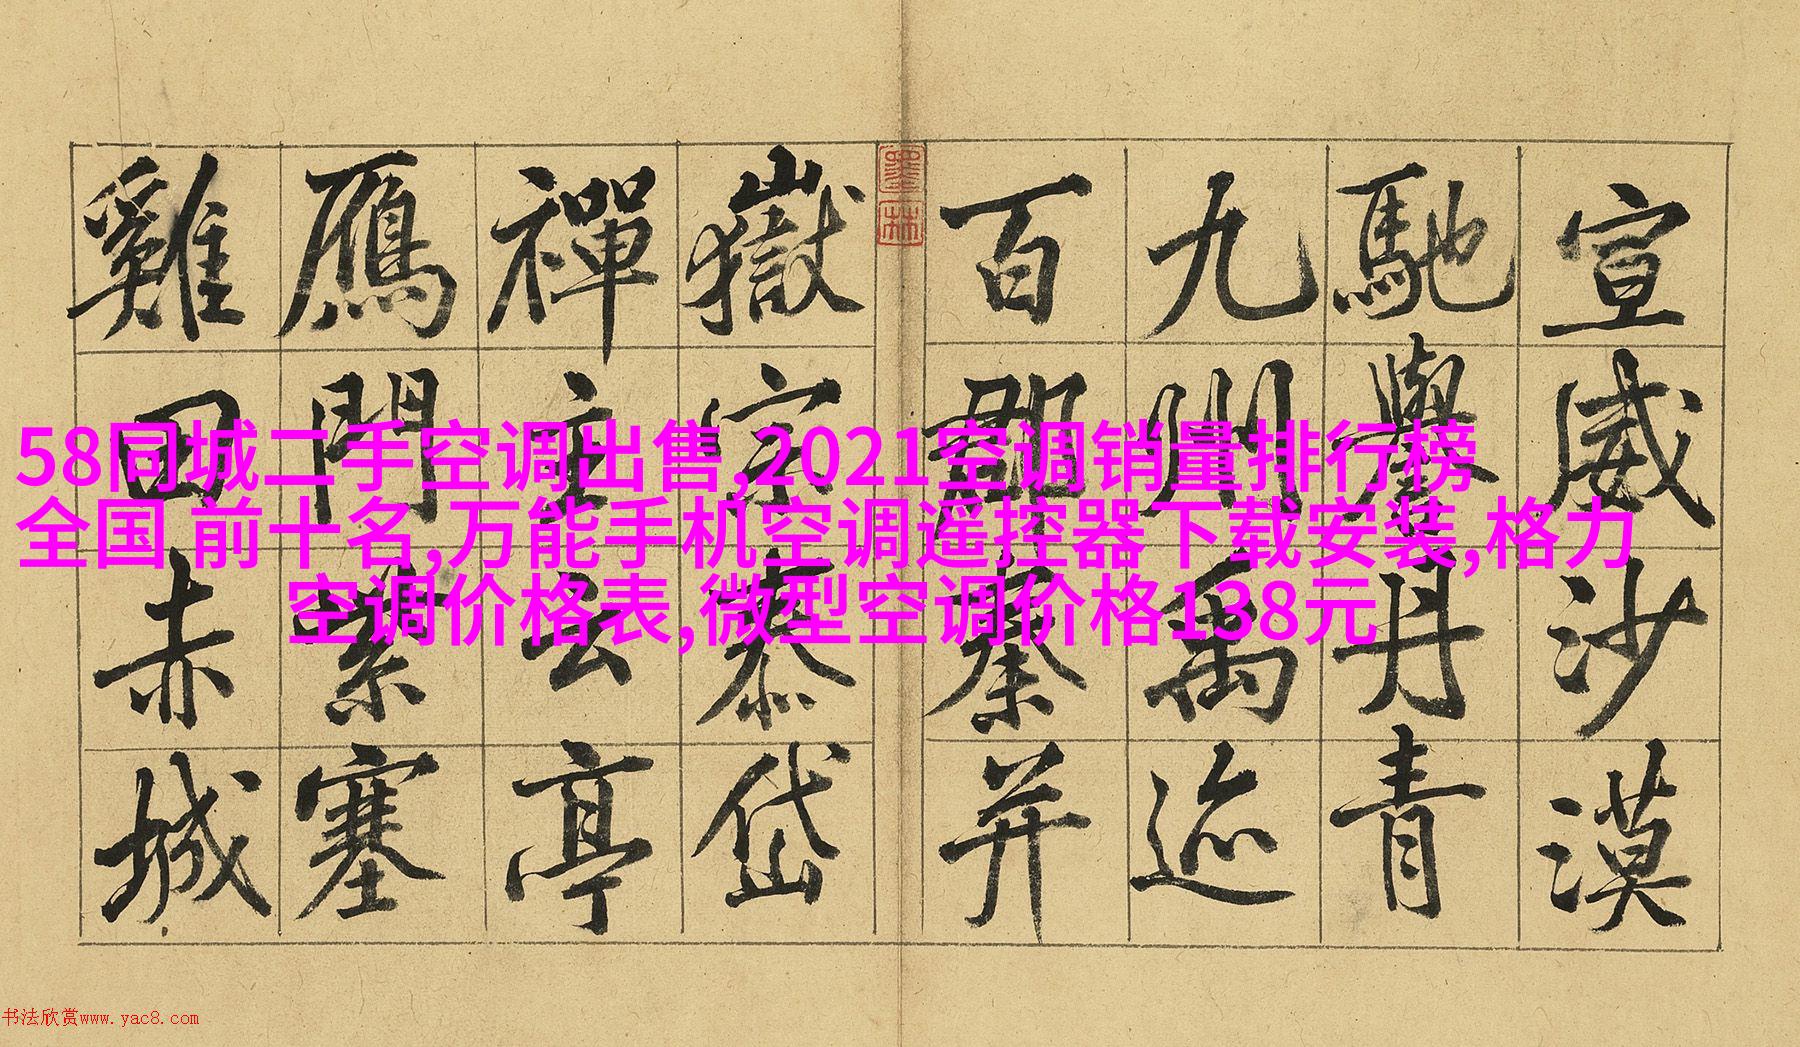 宣威沙漠
馳譽丹青
九州禹迹
百郡秦并
墨林
嶽宗泰岱
禪主云亭
鴈門紫塞
雞田赤城
58同城二手空调出售,2021空调销量排行榜
全国 前十名,万能手机空调遥控器下载安装,格力
空调价格表,微型空调价格138元
书法欣赏www.yac8.com